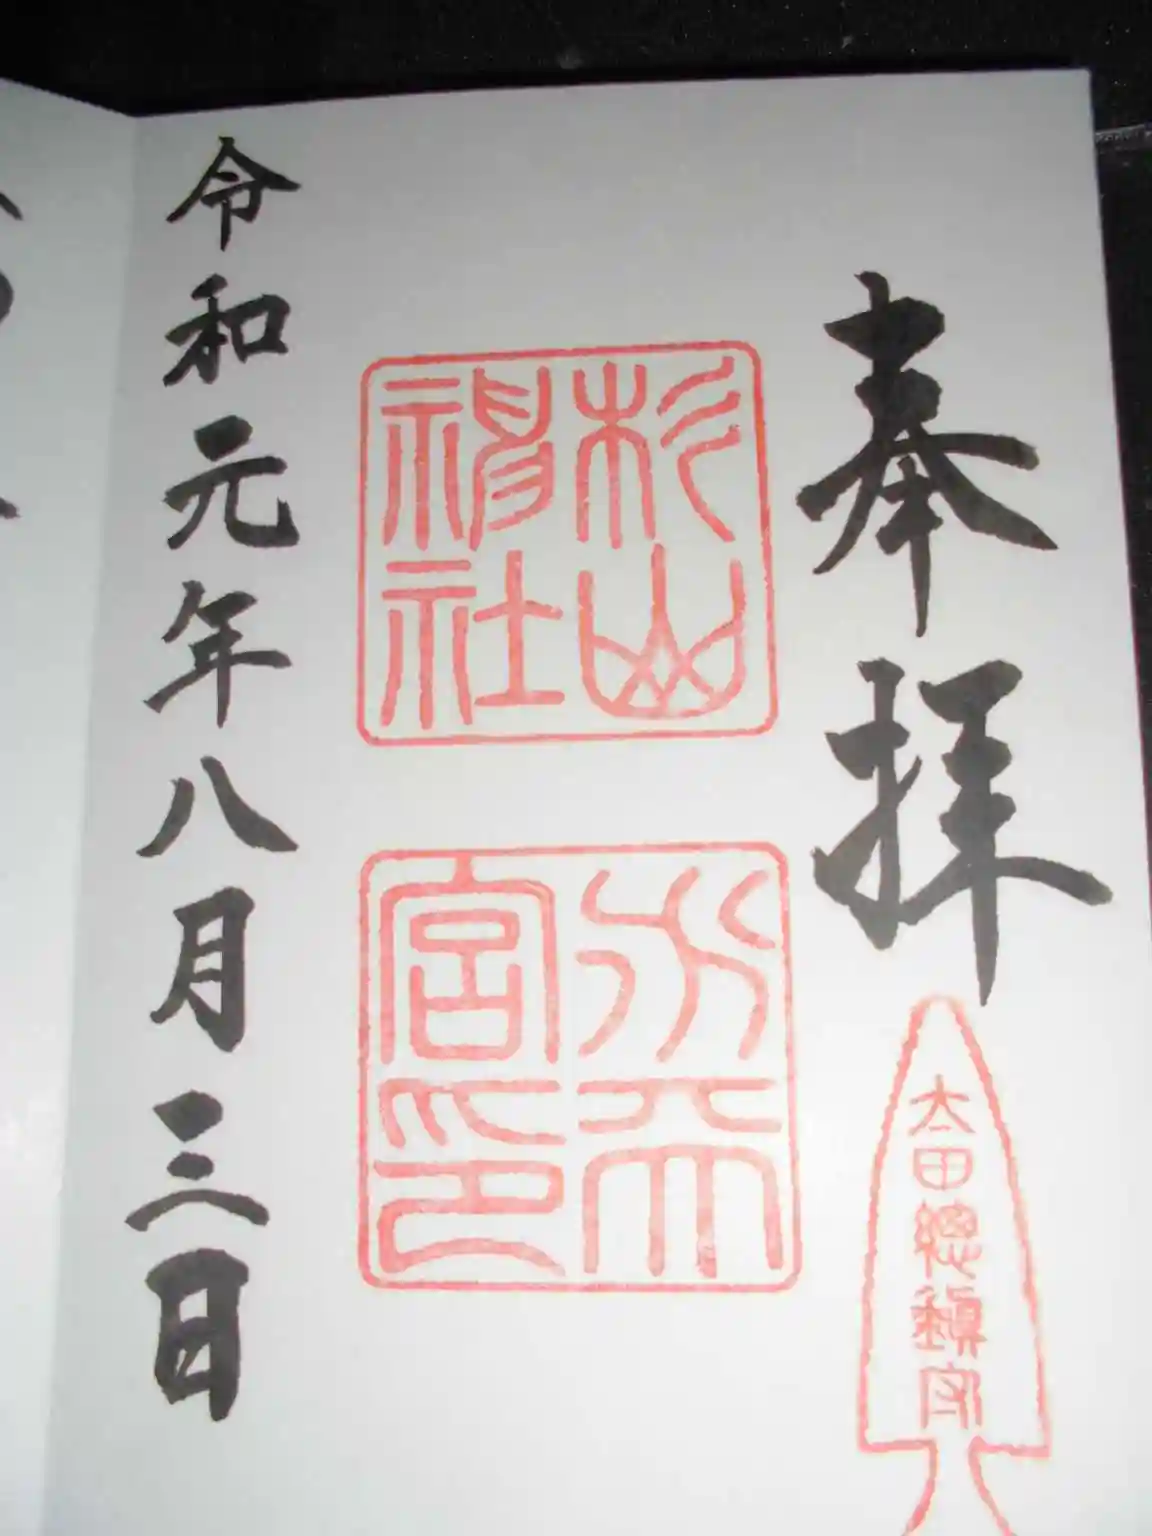 奉拝
太田總鎮守
杉山
神社
水天
宮印
令和元年八月三日